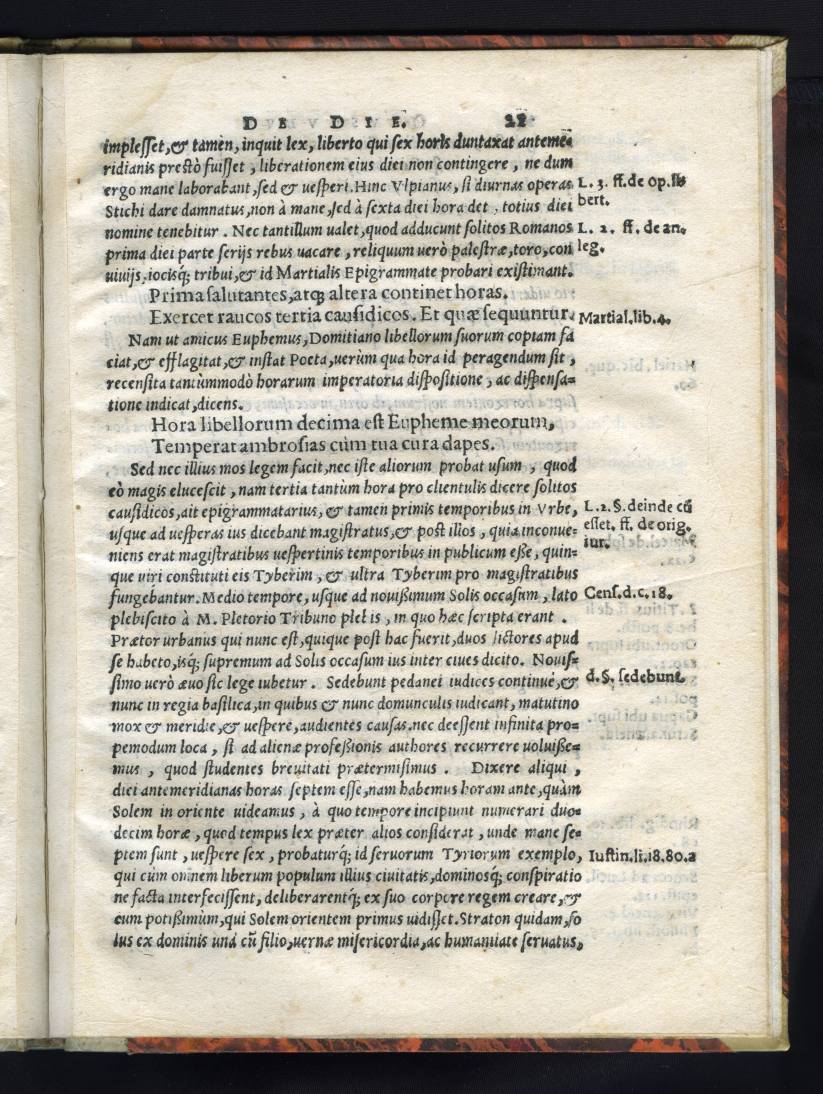 DE DIE. 22
implesset,& tamèn, inquit lex, liberto qui sex horis duntaxat anteme-
ridianis prestò fuisset, liberationem eius diei non contingere, ne dum
ergo mane laborabant, sed & uesperi. Hinc Vlpianus, si diurnas operas
L. 3. ff. de op. li
bert.
Stichi dare damnatus, non à mane, sed à sexta diei hora det, totius diei
nomine tenebitur. Nec tantillum ualet, quod adducunt solitos Romanos
L. 2. ff. de an.
leg.
prima diei parte serijs rebus uacare, reliquum uerò palestræ, toro, con
uiuijs, iocisq; tribui, & id Martialis Epigrammate probari existimant.
Prima salutantes, atq; altera continet horas.
Exercet raucos tertia causidicos. Et quæ sequuntur.
Martial. lib. 4.
Nam ut amicus Euphemus, Domitiano libellorum suorum copiam fa
ciat, & efflagitat, & instat Poeta, uerùm qua hora id peragendum sit,
recensita tantùmmodò horarum imperatoria dispositione, ac dispensa=
tione indicat, dicens.
Hora libellorum decima est Eupheme meorum,
Temperat ambrosias cùm tua cura dapes.
Sed nec illius mos legem facit, nec iste aliorum probat usum, quod
eò magis elucescit, nam tertia tantùm hora pro clientulis dicere solitos
causidicos, ait epigrammatarius, & tamen primis temporibus in Vrbe,
L. 2. §. deinde cū
esset. ff. de orig.
iur.
usque ad uesperas ius dicebant magistratus, & post illos, quia inconue=
niens erat magistratibus uespertinis temporibus in publicum eße, quin=
que uiri constituti eis Tyberim, & ultra Tyberim pro magistratibus
fungebantur. Medio tempore, usque ad nouißimum Solis occasum, lato
Cens. d. c. 18.
plebiscito à M. Pletorio Tribuno plebis, in quo hæc scripta erant.
Prætor urbanus qui nunc est, quique post hac fuerit, duos lictores apud
se habeto, isq; supremum ad Solis occasum ius inter ciues dicito. Nouis=
simo uerò æuo sic lege iubetur. Sedebunt pedanei iudices continuè, &
d. §. sedebunt.
nunc in regia basilica, in quibus & nunc domunculis iudicant, matutino
mox & meridie, & uespere, audientes causas, nec deessent infinita pro=
pemodum loca, si ad alienæ profeßionis authores recurrere uoluiße=
mus, quod studentes breuitati prætermisimus. Dixere aliqui,
diei antemeridianas horas septem esse, nam habemus horam ante, quàm
Solem in oriente uideamus, à quo tempore incipiunt numerari duo=
decim horæ, quod tempus lex præter alios considerat, unde mane se=
ptem sunt, uespere sex, probaturq; id seruorum Tyriorum exemplo,
Iustin. li. 18. 80. 2
qui cùm omnem liberum populum illius ciuitatis, dominosq; conspiratio
ne facta interfecissent, deliberarentq; ex suo corpore regem creare, &
eum potißimùm, qui Solem orientem primus uidisset. Straton quidam, so
lus ex dominis unà cū filio, uernæ misericordia, ac humanitate seruatus,